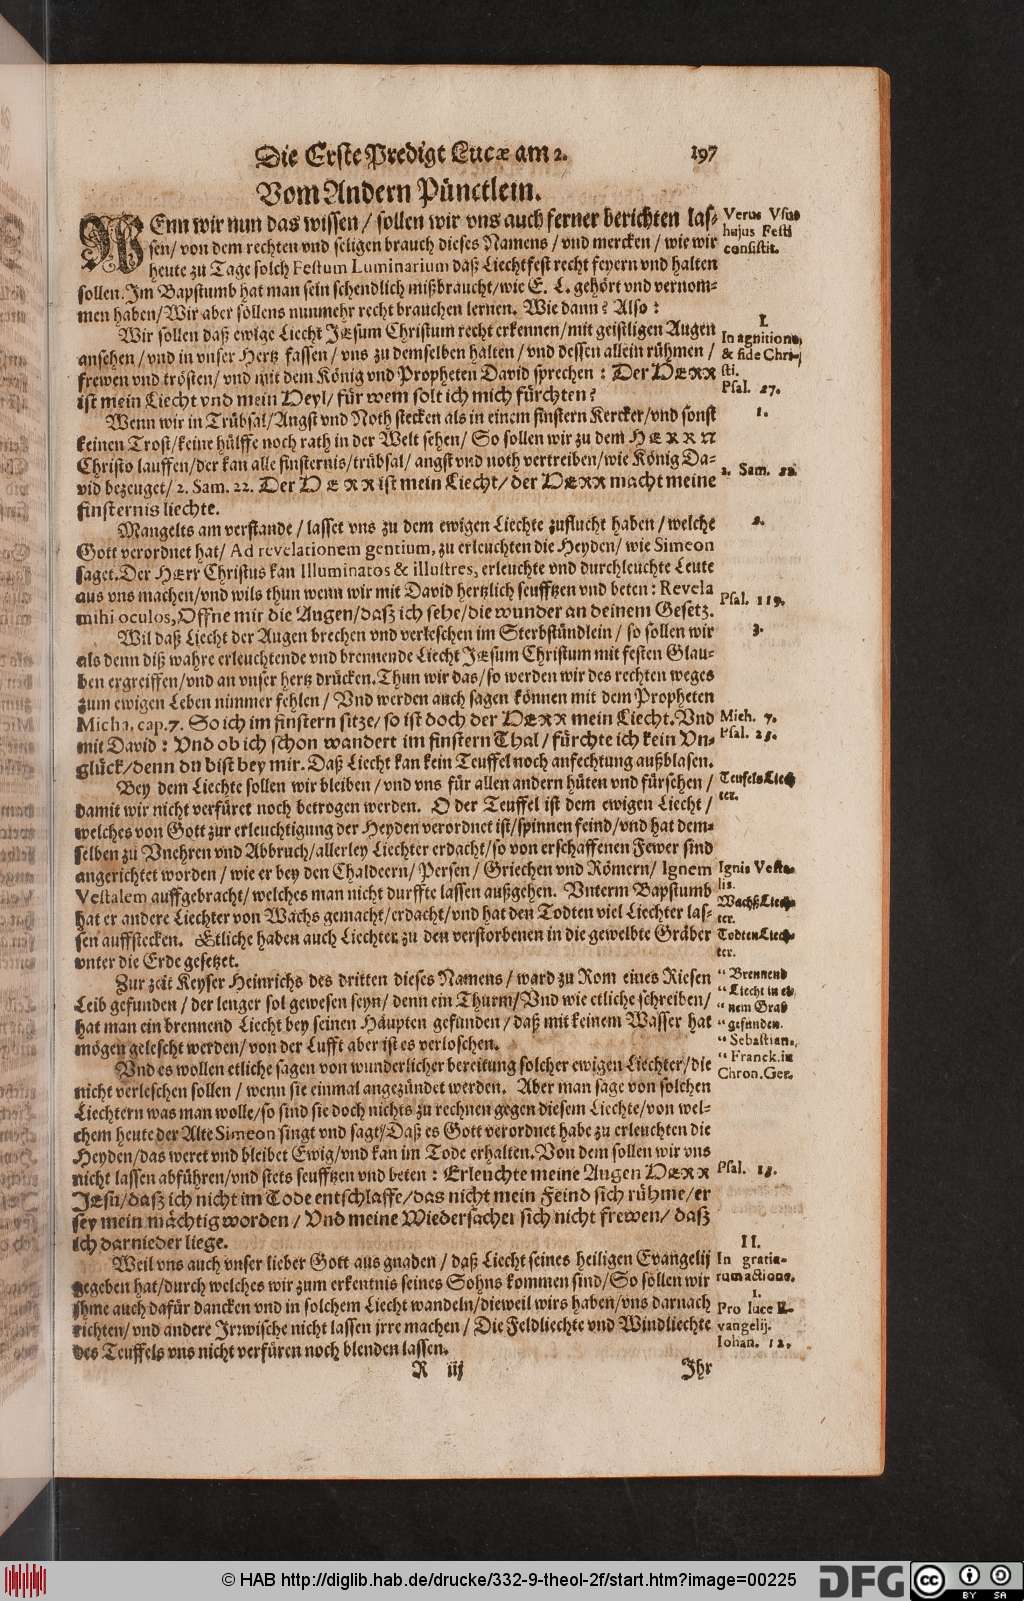 Die Erste Predigt Lucæ am 2. 197
Vom Andern Pünctlein.
WEnn wir nun das wissen / sollen wir vns auch ferner berichten las-
sen/ von dem rechten vnd seligen brauch dieses Namens / vnd mercken / wie wir
heute zu Tage solch Festum Luminarium daß Liechtfest recht feyern vnd halten
sollen. Im Bapstumb hat man sein schendlich mißbraucht/wie E. L. gehört vnd vernom-
men haben/Wir aber söllens nunmehr recht brauchen lernen. Wie dann? Also:
Verus Vsus
hujus Festi
consistit.
Wir sollen daß ewige Liecht JEsum Christum recht erkennen/mit geistligen Augen
ansehen / vnd in vnser Hertz fassen / vns zu demselben halten / vnd dessen allein rühmen /
frewen vnd trösten/ vnd mit dem König vnd Propheten David sprechen : Der HERR
ist mein Liecht vnd mein Heyl/ für wem solt ich mich fürchten?
I.
In agnitione,
& fide Chri-
sti.
Psal. 27.
Wenn wir in Trübsal/Angst vnd Noth stecken als in einem finstern Kercker/vnd sonst
keinen Trost/keine hülffe noch rath in der Welt sehen/ So sollen wir zu dem HERRN
Christo lauffen/der kan alle finsternis/trübsal/ angst vnd noth vertreiben/wie König Da-
vid bezeuget/ 2. Sam. 22. Der HERR ist mein Liecht/ der HERR macht meine
finsternis liechte.
1.
2. Sam. 22.
Mangelts am verstande / lasset vns zu dem ewigen Liechte zuflucht haben / welche
Gott verordnet hat/ Ad revelationem gentium, zu erleuchten die Heyden/ wie Simeon
saget. Der HErr Christus kan Illuminatos & illustres, erleuchte vnd durchleuchte Leute
aus vns machen/vnd wils thun wenn wir mit David hertzlich seufftzen vnd beten: Revela
mihi oculos, Offne mir die Augen/daß ich sehe/die wunder an deinem Gesetz.
2.
Psal. 119.
Wil daß Liecht der Augen brechen vnd verleschen im Sterbstündlein / so sollen wir
als denn diß wahre erleuchtende vnd brennende Liecht JEsum Christum mit festen Glau-
ben ergreiffen/vnd an vnser hertz drücken. Thun wir das/so werden wir des rechten weges
zum ewigen Leben nimmer fehlen / Vnd werden auch sagen können mit dem Propheten
Micha, cap. 7. So ich im finstern sitze/ so ist doch der HERR mein Liecht. Vnd
mit David : Vnd ob ich schon wandert im finstern Thal / fürchte ich kein Vn-
glück/denn du bist bey mir. Daß Liecht kan kein Teuffel noch anfechtung außblasen.
3.
Mich. 7.
Psal. 23.
Bey dem Liechte sollen wir bleiben / vnd vns für allen andern hüten vnd fürsehen /
damit wir nicht verfüret noch betrogen werden. O der Teuffel ist dem ewigen Liecht /
welches von Gott zur erleuchtigung der Heyden verordnet ist/spinnen feind/vnd hat dem-
selben zu Vnehren vnd Abbruch/allerley Liechter erdacht/so von erschaffenen Fewer sind
angerichtet worden / wie er bey den Chaldeern/ Persen / Griechen vnd Römern/ Ignem
Vestalem auffgebracht/welches man nicht durffte lassen außgehen. Vnterm Bapstumb
hat er andere Liechter von Wachs gemacht/erdacht/vnd hat den Todten viel Liechter las-
sen auffstecken. Etliche haben auch Liechter zu den verstorbenen in die gewelbte Gräber
vnter die Erde gesetzet.
Teufels Liech-
ter.
Ignis Vesta-
lis.
Wachß Liech-
ter.
Todten Liech-
ter.
Zur zeit Keyser Heinrichs des dritten dieses Namens / ward zu Rom eines Riesen
Leib gefunden / der lenger sol gewesen seyn/ denn ein Thurm/ Vnd wie etliche schreiben/
hat man ein brennend Liecht bey seinen Häupten gefunden / daß mit keinem Wasser hat
mögen gelescht werden/von der Lufft aber ist es verloschen.
“ Brennend
“ Liecht in ei-
“ nem Grab
“ gefunden.
“ Sebastian.
“ Franck. in
Chron. Ger.
Vnd es wollen etliche sagen von wunderlicher bereitung solcher ewigen Liechter/die
nicht verleschen sollen / wenn sie einmal angezündet werden. Aber man sage von solchen
Liechtern was man wolle/so sind sie doch nichts zu rechnen gegen diesem Liechte/von wel-
chem heute der Alte Simeon singt vnd sagt/Daß es Gott verordnet habe zu erleuchten die
Heyden/das weret vnd bleibet Ewig/vnd kan im Tode erhalten. Von dem sollen wir vns
nicht lassen abführen/vnd stets seufftzen vnd beten : Erleuchte meine Augen HERR
JEsu/daß ich nicht im Tode entschlaffe/das nicht mein Feind sich rühme/er
sey mein mächtig worden / Vnd meine Wiedersacher sich nicht frewen/ daß
ich darnieder liege.
Psal. 13.
Weil vns auch vnser lieber Gott aus gnaden / daß Liecht seines heiligen Evangelij
gegeben hat/durch welches wir zum erkentnis seines Sohns kommen sind/So söllen wir
ihme auch dafür dancken vnd in solchem Liecht wandeln/dieweil wirs haben/vns darnach
richten/vnd andere Jrrwische nicht lassen jrre machen / Die Feldliechte vnd Windliechte
des Teuffels vns nicht verfüren noch blenden lassen.
II.
In gratia-
rum actione.
1.
Pro luce E-
vangelij.
Iohan. 12.
R iij Jhr
© HAB http://diglib.hab.de/drucke/332-9-theol-2f/start.htm?image=00225
DFG
cc
BY SA